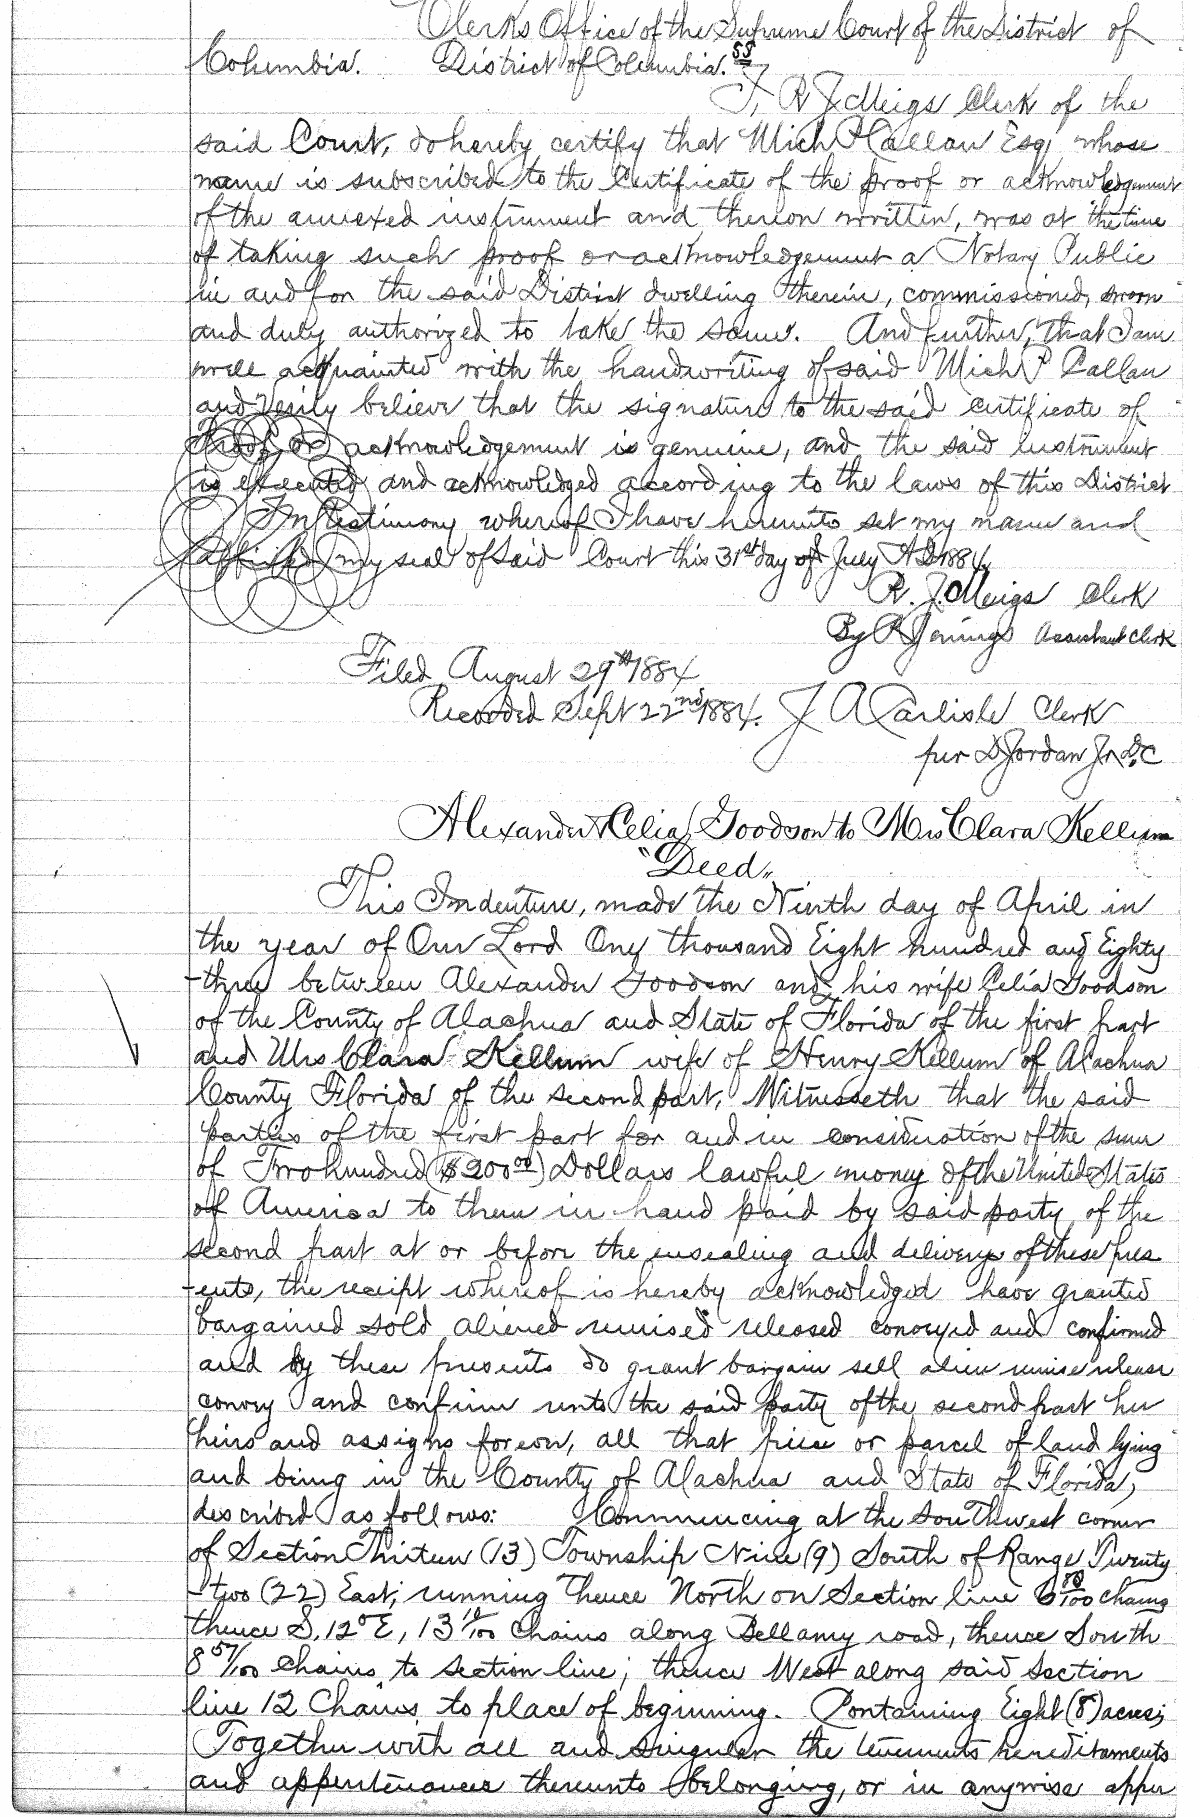 Clerks Office of the Supreme Court of the District of
Columbia. District of Columbia. SS
I, R J Meigs Clerk of the
said Court, do hereby certify that Mich P Callan Esq whose
name is subscribed to the Certificate of the proof or acknowledgement
of the annexed instrument and thereon written, was at the time
of taking such proof or acknowledgement a Notary Public
in and for the said District dwelling therein, commissioned, sworn
and duly authorized to take the same. And further, that I am
well acquainted with the handwriting of said Mich P Callan
and verily believe that the signature to the said certificate of
Proof or acknowledgement is genuine, and the said Instrument
is executed and acknowledged according to the laws of this District
In testimony whereof I have hereunto set my name and
affixed my seal of said Court this 31st day of July A.D. 1884,
R. J. Meigs Clerk
By R Jennings Assistant Clerk
Filed August 29th 1884
Recorded Sept 22nd 1884. J A Carlisle Clerk
per D Jordan Jr D.C
Alexander & Celia Goodson to Mrs Clara Kellum
"Deed"
This Indenture, made the Ninth day of April in
the year of Our Lord One thousand Eight hundred and Eighty
-three between Alexander Goodson and his wife Celia Goodson
of the County of Alachua and State of Florida of the first part
and Mrs Clara Kellum wife of Henry Kellum of Alachua
County Florida of the second part, Witnesseth that the said
parties of the first part for and in consideration of the sum
of Two hundred ($200 00) Dollars lawful money of the United States
of America to them in hand paid by said party of the
second part at or before the ensealing and delivery of these pres
-ents, the receipt whereof is hereby acknowledged have granted
bargained sold aliened remised released conveyed and confirmed
and by these presents do grant bargain sell alien remise release
convey and confirm unto the said party of the second part her
heirs and assigns forever, all that piece or parcel of land lying
and being in the County of Alachua and State of Florida,
described as follows: Commencing at the Southwest corner
of Section Thirteen (13) Township Nine (9) South of Range Twenty
-two (22) East; running thence North on Section line 6 50/100 chains
thence S. 12° E, 13 10/100 Chains along Bellamy road, thence South
8 57/100 Chains to section line; thence West along said Section
line 12 Chains to place of beginning. Containing Eight (8) acres;
Together with all and singular the tenements hereditaments
and appertenances thereunto belonging, or in anywise apper